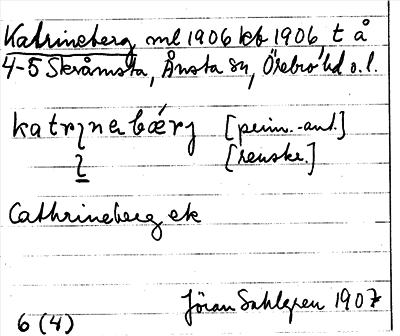 Katrineberg ml 1906 kb 1906, t å
4-5 Skråmsta, Ånsta sn, Örebro hd o. l.
katrınabærj [prim.-ant.]
[renskr.]
Cathrineberg ek
Jöran Sahlgren 1907
6 (4)